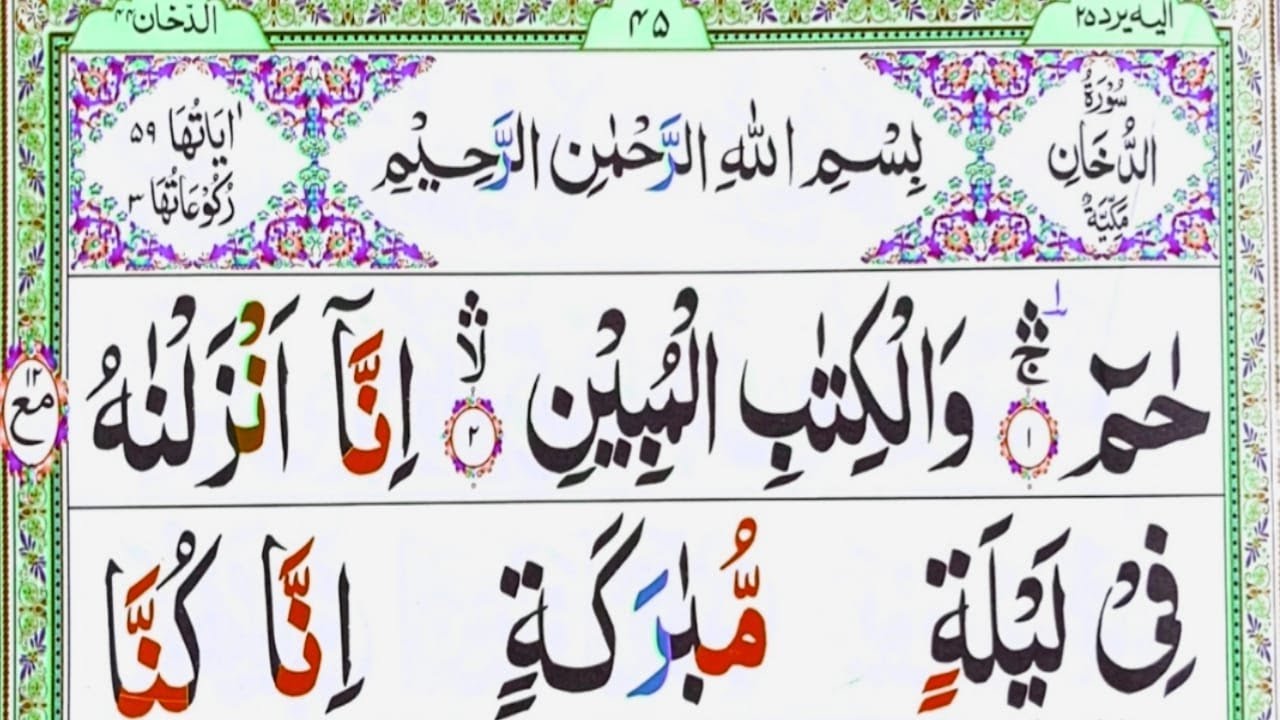 الیہ یرد ۲۵
۴۵
الدّخان ۴۴
سُوْرَةُ
الدُّخَانِ
مَكِّيَّةٌ
بِسْمِ اللّٰهِ الرَّحْمٰنِ الرَّحِيْمِ
اٰيَاتُهَا ۵۹
رُكُوْعَاتُهَا ۳
حٰمٓ ۚۛ ۱ وَالْكِتٰبِ الْمُبِيْنِ ۙۛ ۲ اِنَّاۤ اَنْزَلْنٰهُ
۱۲
مع
فِيْ لَيْلَةٍ مُّبٰرَكَةٍ اِنَّا كُنَّا